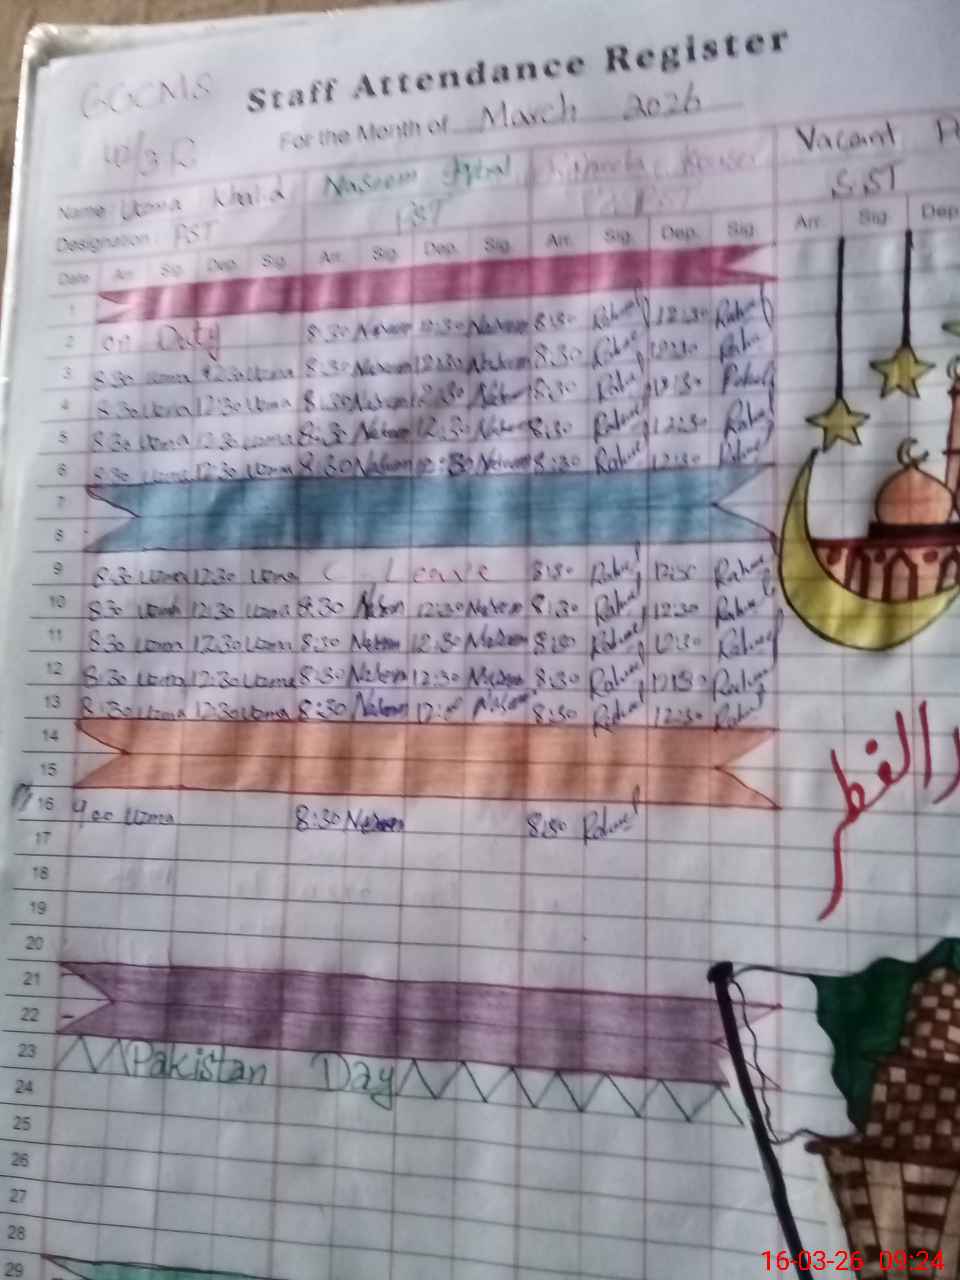 GGCMS
Staff Attendance Register
For the Month of March 2026
Name Uzma Khalid Naseem Kouser Vacant
Designation PST PST SST
Date Arr. Sig. Dep. Sig. Arr. Sig. Dep. Sig. Arr. Sig. Dep. Sig. Arr. Sig. Dep.
1
2 on Duty 8:30 Naseem 12:30 Naseem 8:30 12:30
3 8:30 Uzma 12:30 Uzma 8:30 Naseem 12:30 Naseem 8:30 12:30
4 8:30 Uzma 12:30 Uzma 8:30 Naseem 12:30 Naseem 8:30 12:30
5 8:30 Uzma 12:30 Uzma 8:30 Naseem 12:30 Naseem 8:30 12:30
6 8:30 Uzma 12:30 Uzma 8:30 Naseem 12:30 Naseem 8:30 12:30
7
8
9 8:30 Uzma 12:30 Uzma C. Leave 8:30 12:30
10 8:30 Uzma 12:30 Uzma 8:30 Naseem 12:30 Naseem 8:30 12:30
11 8:30 Uzma 12:30 Uzma 8:30 Naseem 12:30 Naseem 8:30 12:30
12 8:30 Uzma 12:30 Uzma 8:30 Naseem 12:30 Naseem 8:30 12:30
13 8:30 Uzma 12:30 Uzma 8:30 Naseem Naseem 8:30 12:30
14
15
16 Uzma 8:30 Naseem 8:30
17
18
19
20
21
22
23 Pakistan Day
24
25
26
27
28
29
الفطر
16-03-26 09:24